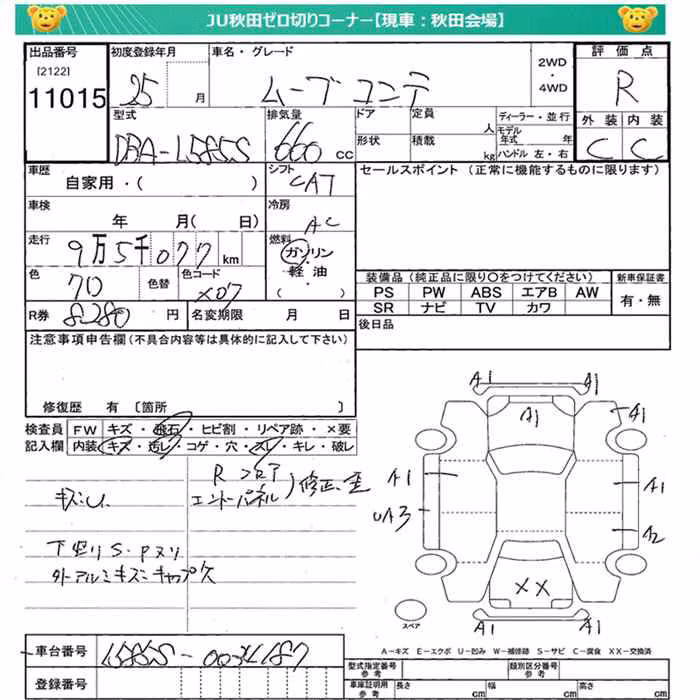 JU秋田ゼロ切りコーナー【現車：秋田会場】
出品番号
[2122]
11015
初度登録年月
25 月
車名・グレード
ムーブコンテ
2WD
・
4WD
評価点
R
外装 内装
C C
型式
DBA-L585S
排気量
660 cc
ドア
定員
人
形状
積載
kg
ディーラー・並行
モデル年式 年
ハンドル 左・右
車歴
自家用・( )
シフト
CAT
セールスポイント (正常に機能するものに限ります)
車検
年 月( 日)
冷房
AC
走行
9万5千077 km
燃料
ガソリン
軽油・
( )
色
色替
色コード
X07
装備品 (純正品に限り〇をつけてください)
PS PW ABS エアB AW
SR ナビ TV カワ
新車保証書
有・無
R券
8280 円
名変期限 月 日
後日品
注意事項申告欄 (不具合内容等は具体的に記入して下さい)
修復歴 有 〔箇所 〕
検査員記入欄
FW キズ・飛石・ヒビ割・リペア跡・×要
内装 キズ・汚レ・コゲ・穴・スレ・キレ・破レ
Rフロア
エンドーパネル
修正、歪
キズU.
下廻りS・Pヌリ
外-アルミキズ-キャップ欠
A1
A1
A1
A1
A1
A1
A1
UA3
A2
XX
A1
A1
スペア
A-キズ E-エクボ U-凹み W-補修跡 S-サビ C-腐食 XX-交換済
車台番号
L585S-
登録番号
型式指定番号
参考
類別区分番号
参考
車庫証明用
参考
長さ cm
幅 cm
高さ cm